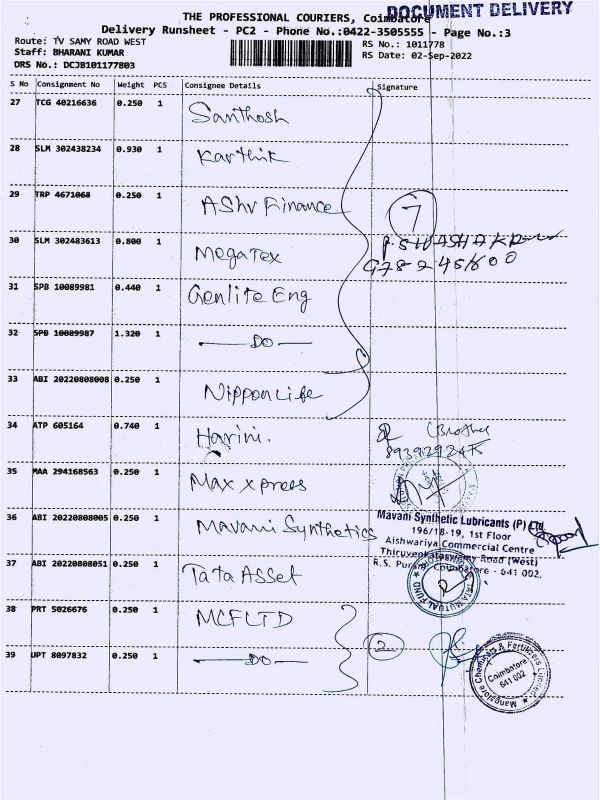 DOCUMENT DELIVERY
THE PROFESSIONAL COURIERS, Coimbatore
Delivery Runsheet - PC2 - Phone No.:0422-3505555 - Page No.:3
Route: TV SAMY ROAD WEST
RS No.: 1011778
Staff: BHARANI KUMAR
RS Date: 02-Sep-2022
DRS No.: DCJB101177803
S No Consignment No Weight PCS Consignee Details Signature
27 TCG 40216636 0.250 1 Santhosh
28 SLM 302438234 0.930 1 Karthik
29 TRP 4671068 0.250 1 AShv Finance 7
30 SLM 302483613 0.800 1 MegaTex
31 SPB 10089981 0.440 1 Genlite Eng
32 SPB 10089987 1.320 1 DO
33 ABI 20220808008 0.250 1 Nippon Life
34 ATP 605164 0.740 1 Harini. (Brother
35 MAA 294168563 0.250 1 Max xprees
36 ABI 20220808005 0.250 1 Mavani Synthetics
Mavani Synthetic Lubricants (P) Ltd
196/18-19, 1st Floor
Aishwariya Commercial Centre
Thiruvenkataswamy Road (West)
R.S. Puram, Coimbatore - 641 002.
37 ABI 20220808051 0.250 1 Tata Asset
TATA MUTUAL FUND
38 PRT 5026676 0.250 1 MCFLTD
39 UPT 8097832 0.250 1 DO 2
Mangalore Chemicals & Fertilizers Limited
Coimbatore
641 002